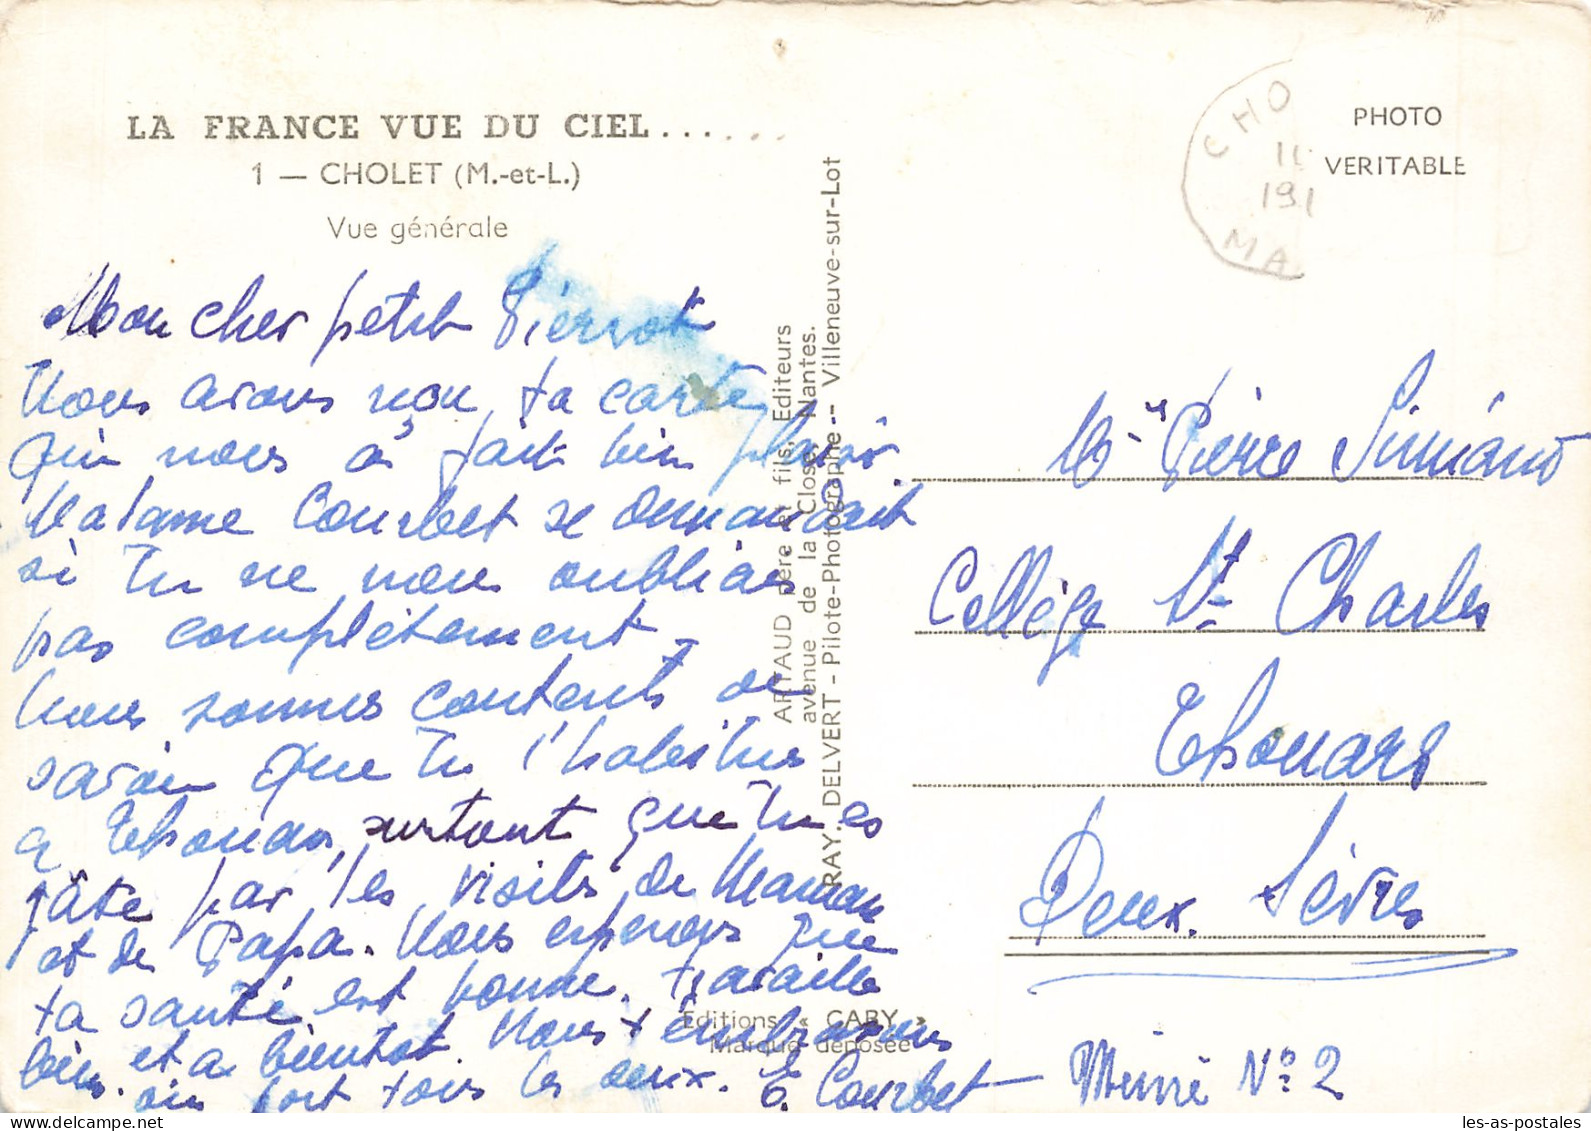 LA FRANCE VUE DU CIEL......
1 — CHOLET (M.-et-L.)
Vue générale
Mon cher petit Pierrot
Nous avons reçu ta carte
qui nous a fait bien plaisir
Madame Courbet se demandait
si tu ne nous oubliais
pas complètement -
Nous sommes contents de
savoir que tu t'habitues
a Thouars, surtout que tu es
gâté par les visites de Maman
et de Papa. Nous esperons que
ta santé est bonne, travaille
bien. et a bientot. Nous t'embrassons
bien fort tous les deux. E. Courbet - Mémé N° 2
ARTAUD père et fils, Editeurs
avenue de la Close, Nantes.
RAY. DELVERT - Pilote-Photographe - Villeneuve-sur-Lot
Editions « GABY »
Marque déposée
CHO
MA
PHOTO
VERITABLE
Pierre
Collège St Charles
Thouars
Deux. Sèvres
les-as-postales